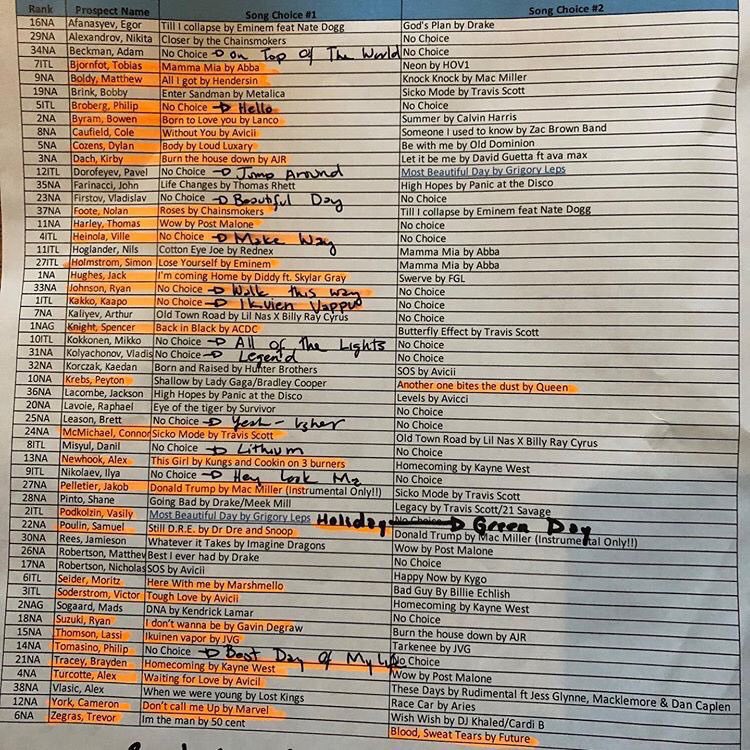 Rank Prospect Name Song Choice #1 Song Choice #2
16NA Afanasyev, Egor Till I collapse by Eminem feat Nate Dogg God's Plan by Drake
29NA Alexandrov, Nikita Closer by the Chainsmokers No Choice
34NA Beckman, Adam No Choice → On Top Of The World No Choice
7ITL Bjornfot, Tobias Mamma Mia by Abba Neon by HOV1
9NA Boldy, Matthew All I got by Hendersin Knock Knock by Mac Miller
19NA Brink, Bobby Enter Sandman by Metalica Sicko Mode by Travis Scott
5ITL Broberg, Philip No Choice → Hello No Choice
2NA Byram, Bowen Born to Love you by Lanco Summer by Calvin Harris
8NA Caufield, Cole Without You by Avicii Someone I used to know by Zac Brown Band
5NA Cozens, Dylan Body by Loud Luxary Be with me by Old Dominion
3NA Dach, Kirby Burn the house down by AJR Let it be me by David Guetta ft ava max
12ITL Dorofeyev, Pavel No Choice → Jump Around Most Beautiful Day by Grigory Leps
35NA Farinacci, John Life Changes by Thomas Rhett High Hopes by Panic at the Disco
23NA Firstov, Vladislav No Choice → Beautiful Day No Choice
37NA Foote, Nolan Roses by Chainsmokers Till I collapse by Eminem feat Nate Dogg
11NA Harley, Thomas Wow by Post Malone No choice
4ITL Heinola, Ville No Choice → Make Way No Choice
11ITL Hoglander, Nils Cotton Eye Joe by Rednex Mamma Mia by Abba
27ITL Holmstrom, Simon Lose Yourself by Eminem Mamma Mia by Abba
1NA Hughes, Jack I'm coming Home by Diddy ft. Skylar Gray Swerve by FGL
33NA Johnson, Ryan No Choice → Walk this way No Choice
1ITL Kakko, Kaapo No Choice → Ikvien Vappu No Choice
7NA Kaliyev, Arthur Old Town Road by Lil Nas X Billy Ray Cyrus No Choice
1NAG Knight, Spencer Back in Black by ACDC Butterfly Effect by Travis Scott
10ITL Kokkonen, Mikko No Choice → All of the Lights No Choice
31NA Kolyachonov, Vladis No Choice → Legend No Choice
32NA Korczak, Kaedan Born and Raised by Hunter Brothers SOS by Avicii
10NA Krebs, Peyton Shallow by Lady Gaga/Bradley Cooper Another one bites the dust by Queen
36NA Lacombe, Jackson High Hopes by Panic at the Disco Levels by Avicci
20NA Lavoie, Raphael Eye of the tiger by Survivor No Choice
25NA Leason, Brett No Choice → Yeah - Usher No Choice
24NA McMichael, Connor Sicko Mode by Travis Scott Old Town Road by Lil Nas X Billy Ray Cyrus
8ITL Misyul, Danil No Choice → Lithium No Choice
13NA Newhook, Alex This Girl by Kungs and Cookin on 3 burners Homecoming by Kayne West
9ITL Nikolaev, Ilya No Choice → Hey Look Ma No Choice
27NA Pelletier, Jakob Donald Trump by Mac Miller (Instrumental Only!!) Sicko Mode by Travis Scott
28NA Pinto, Shane Going Bad by Drake/Meek Mill Legacy by Travis Scott/21 Savage
2ITL Podkolzin, Vasily Most Beautiful Day by Grigory Leps Holiday No Choice → Green Day
22NA Poulin, Samuel Still D.R.E. by Dr Dre and Snoop Donald Trump by Mac Miller (Instrumental Only!!)
30NA Rees, Jamieson Whatever it Takes by Imagine Dragons Wow by Post Malone
26NA Robertson, Matthew Best I ever had by Drake No Choice
17NA Robertson, Nicholas SOS by Avicii Happy Now by Kygo
6ITL Seider, Moritz Here With me by Marshmello Bad Guy By Billie Echlish
3ITL Soderstrom, Victor Tough Love by Avicii Homecoming by Kayne West
2NAG Sogaard, Mads DNA by Kendrick Lamar No Choice
18NA Suzuki, Ryan I don't wanna be by Gavin Degraw Burn the house down by AJR
15NA Thomson, Lassi Ikuinen vapor by JVG Tarkenee by JVG
14NA Tomasino, Philip No Choice → Best Day Of My Life No Choice
21NA Tracey, Brayden Homecoming by Kayne West Wow by Post Malone
4NA Turcotte, Alex Waiting for Love by Avicii These Days by Rudimental ft Jess Glynne, Macklemore & Dan Caplen
38NA Vlasic, Alex When we were young by Lost Kings Race Car by Aries
12NA York, Cameron Don't call me Up by Marvel Wish Wish by DJ Khaled/Cardi B
6NA Zegras, Trevor Im the man by 50 cent Blood, Sweat Tears by Future